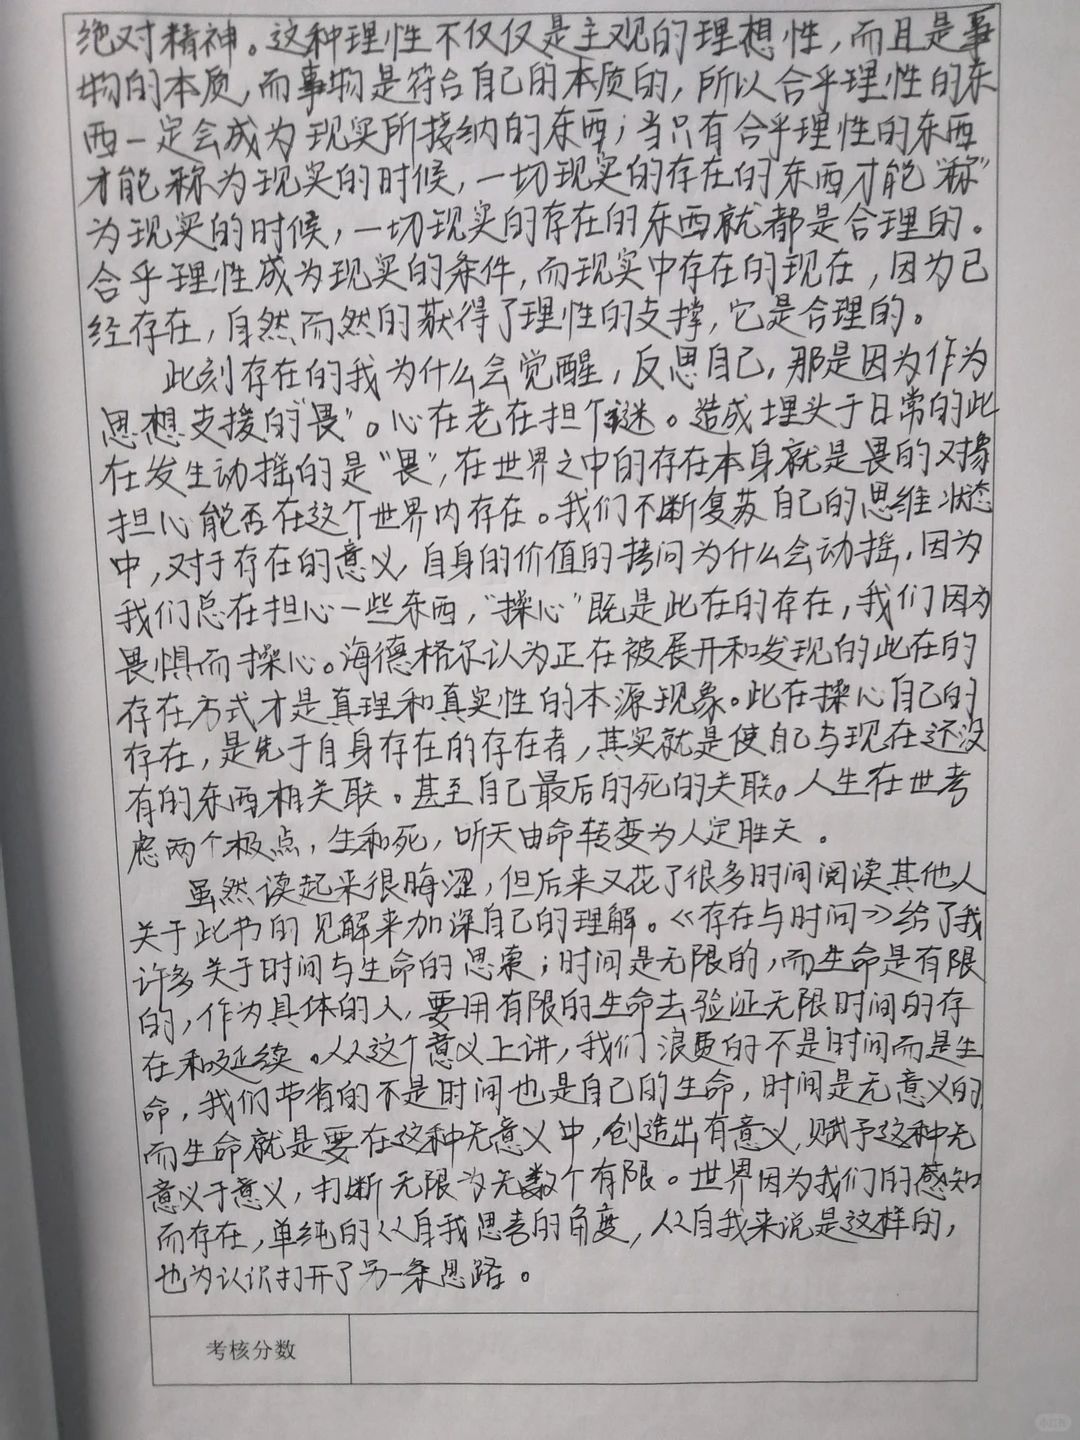 绝对精神。这种理性不仅仅是主观的理想性，而且是事
物的本质，而事物是符合自己的本质的，所以合乎理性的东
西一定会成为现实所接纳的东西；当只有合乎理性的东西
才能称为现实的时候，一切现实的存在的东西才能“称”
为现实的时候，一切现实的存在的东西就都是合理的。
合乎理性成为现实的条件，而现实中存在的现在，因为已
经存在，自然而然的获得了理性的支撑，它是合理的。
此刻存在的我为什么会觉醒，反思自己，那是因为作为
思想支援的“畏”。心在老在担个谜。造成埋头于日常的此
在发生动摇的是“畏”，在世界之中的存在本身就是畏的对象
担心能否在这个世界内存在。我们不断复苏自己的思维状态
中，对于存在的意义，自身的价值的拷问为什么会动摇，因为
我们总在担心一些东西，“操心”既是此在的存在，我们因为
畏惧而操心。海德格尔认为正在被展开和发现的此在的
存在方式才是真理和真实性的本源现象。此在操心自己的
存在，是先于自身存在的存在者，其实就是使自己与现在还没
有的东西相关联。甚至自己最后的死的关联。人生在世考
虑两个极点，生和死，听天由命转变为人定胜天。
虽然读起来很晦涩，但后来又花了很多时间阅读其他人
关于此书的见解来加深自己的理解。《存在与时间》给了我
许多关于时间与生命的思索；时间是无限的，而生命是有限
的，作为具体的人，要用有限的生命去验证无限时间的存
在和延续。从这个意义上讲，我们浪费的不是时间而是生
命，我们节省的不是时间也是自己的生命，时间是无意义的，
而生命就是要在这种无意义中，创造出有意义，赋予这种无
意义于意义，打断无限为无数个有限。世界因为我们的感知
而存在，单纯的从自我思考的角度，从自我来说是这样的，
也为认识打开了另一条思路。
考核分数
小红书